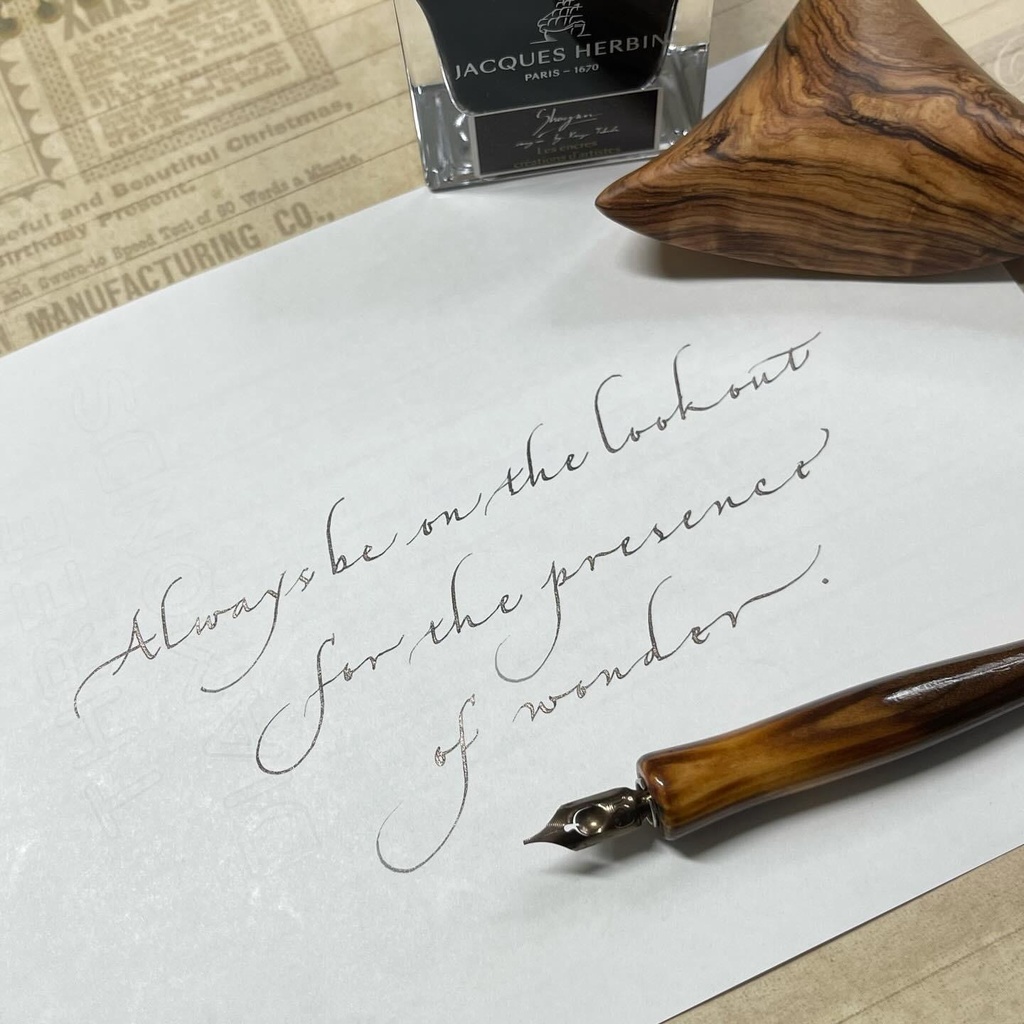 XMAS
Useful and Beautiful Christmas,
Birthday Present.
and Swords—is Speed Test of 90 Words a Minute.
MANUFACTURING CO.,
JACQUES HERBIN
PARIS – 1670
Shogun
Les encres
créations d'artistes
Always be on the lookout
for the presence
of wonder.